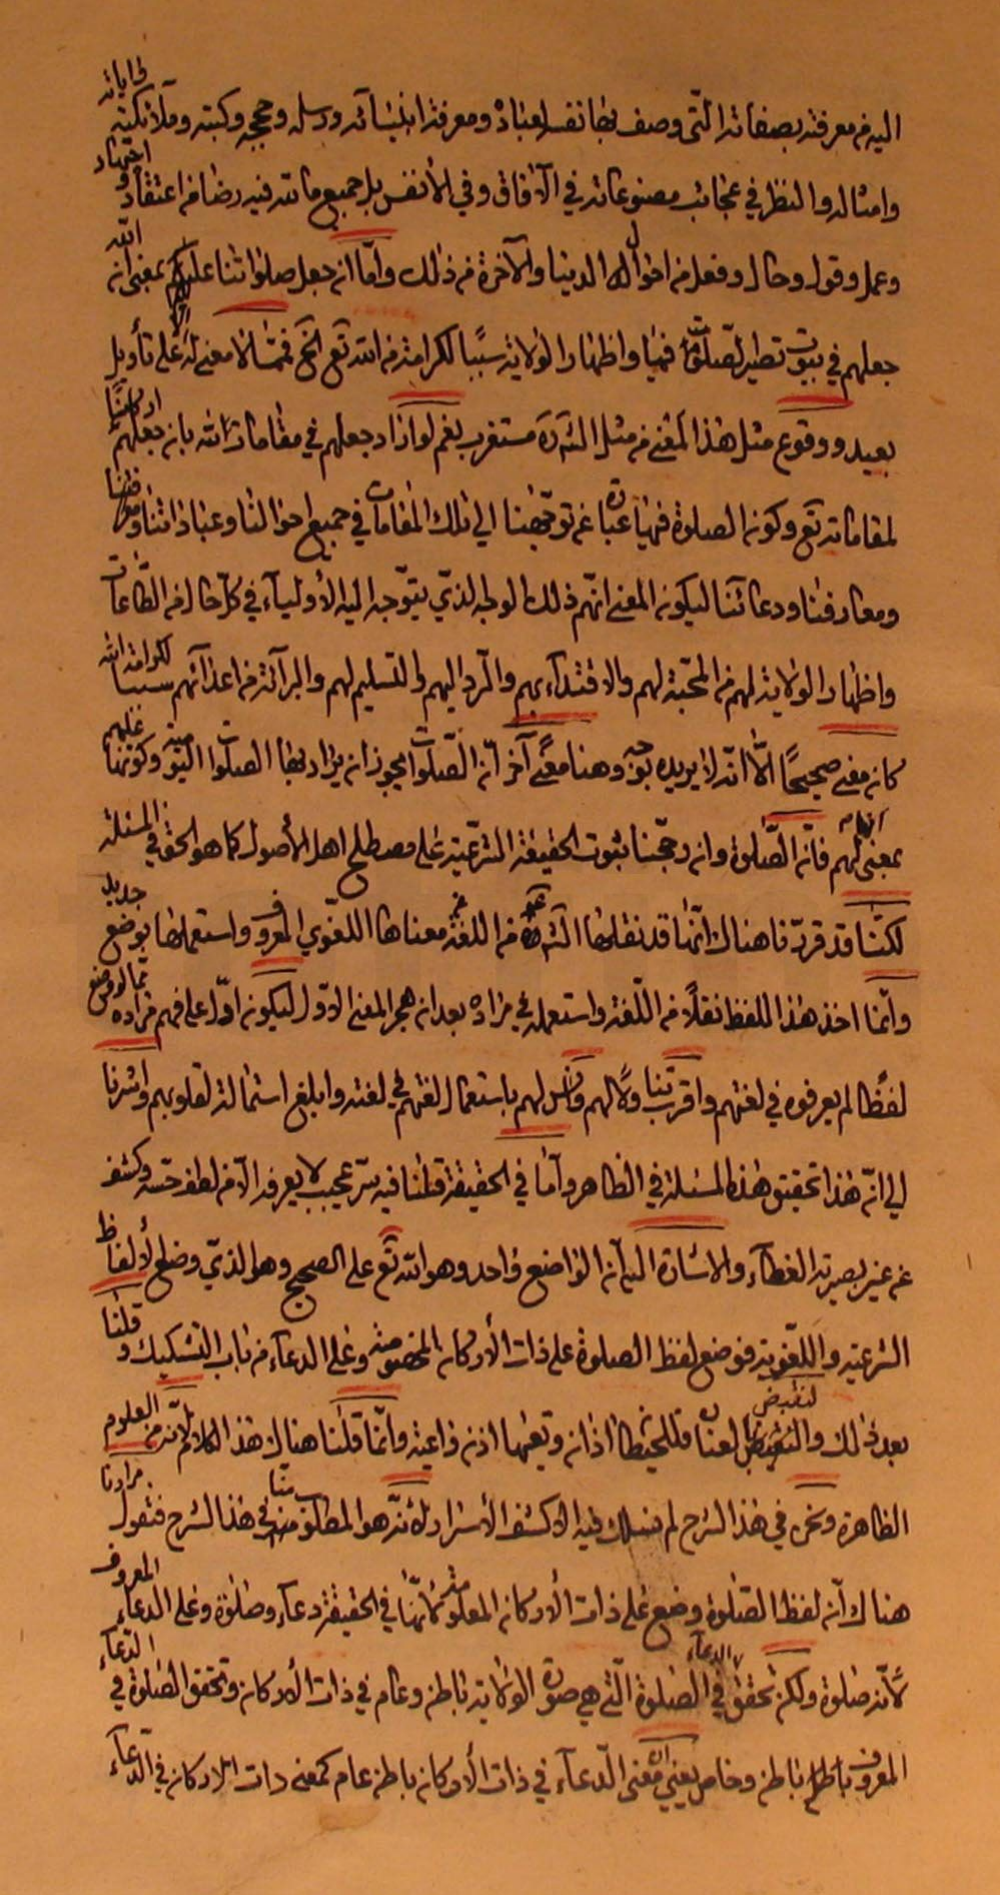 اليه من معرفته بصفاته الّتى وصف بها نفسه لعباده ومعرفة انبيائه ورسله وحججه وكتبه وملائكته فى اياته
وامثاله والنظر في عجائب مصنوعاته في الآفاق وفي الأنفس بل جميع ما لله فيه رضا من اعتقاد واجتهاد
وعمل وقول وحال وفعل من احوال الدنيا والآخرة من ذلك وامّا انه جعل صلواتنا عليهم بمعنى انه الله
جعلهم في بيوت تطهير لصلوتنا فيها واظهار الولاية سببًا لكرامته من الله تع الخ فممّا لا معنى له الا على تأويل
بعيد ووقوع مثل هذا المعنى من مثل الشره مستغرب نعم لو اراد جعلهم في مقامات الله بان جعلهم اركانًا
لمقاماته تع وكون الصلوة فيها عبارة عن توجّهنا الى تلك المقامات في جميع احوالنا وعباداتنا ومواقفنا
ومعارفنا ودعائنا ليكون المعنى انهم ذلك الوجه الذي يتوجه اليه الأولياء في كل حال من الطّاعات
واظهار الولاية لهم من المحبّة لهم والاقتداء بهم والرد اليهم والتسليم لهم والبرائة من اعدائهم سببا لكرامة الله
كان معنى صحيحًا الّا انّه لا يريده بوجه وهنا معنًى آخر انّ الصّلوات يجوز ان يراد بها الصلوات اليومية وكونها عليهم
بمعنى انها لهم فانّ الصّلوة وان رجّحنا ثبوت الحقيقة الشرعيّة على مصطلح اهل الأصول كما هو الحق في المسئلة
لكنّا قد قررّنا هناك انّها قد نقلها الشرع من اللغة عن معناها اللغوي المعروف واستعملها بوضع جديد
وانّما اخذ هذا اللفظ نقلًا من اللّغة واستعمله في مراده بعد ان هجر المعنى الاوّل ليكون ادّل على فهم مراده ممّا لو وضع
لفظًا لم يعرفوه في لغتهم واقرب تناولًا لهم وآنس لهم باستعمال لغتهم في لغته وابلغ استمالة لقلوبهم واشرنا
الى انّ هذا تحقيق هذه المسئلة في الظاهر وامّا في الحقيقة قلنا فيه سرّ عجيب لا يعرفه الّا من لطف حسّه وكشف
عن عين بصيرته الغطاء والاشارة اليه انّ الواضع واحد وهو الله تع على الصحيح وهو الذي وضع الألفاظ
الشرعية واللّغوية فوضع لفظ الصلوة على ذات الأركان المخصوصة وعلى الدعاء من باب التشكيك وقلنا
بعد ذلك لنقبض العنان فللحيطان اذان وتعيها اذن واعية وانّما قلنا هناك هذا الكلام لانّه من العلوم
الظاهرة ونحن في هذا الشرح لم نسلك فيه الا كشف الأسرار لأنّه هو المطلوب منّا في هذا الشرح فنقول مرادنا
هناك انّ لفظ الصّلوة وضع على ذات الأركان المعلومة لأنّها في الحقيقة دعاء وصلوة وعلى الدعاء المعروف
لأنّه صلوة ولكن تحقّق الدعاء في الصلوة الّتى هي صورة الولاية باطن وعام في ذات الأركان وتحقق الصّلوة في الدّعاء
المعروف باطن باطن وخاص يعني ان معنى الدّعاء في ذات الأركان باطن عام كمعنى ذات الاركان في الدّعاء